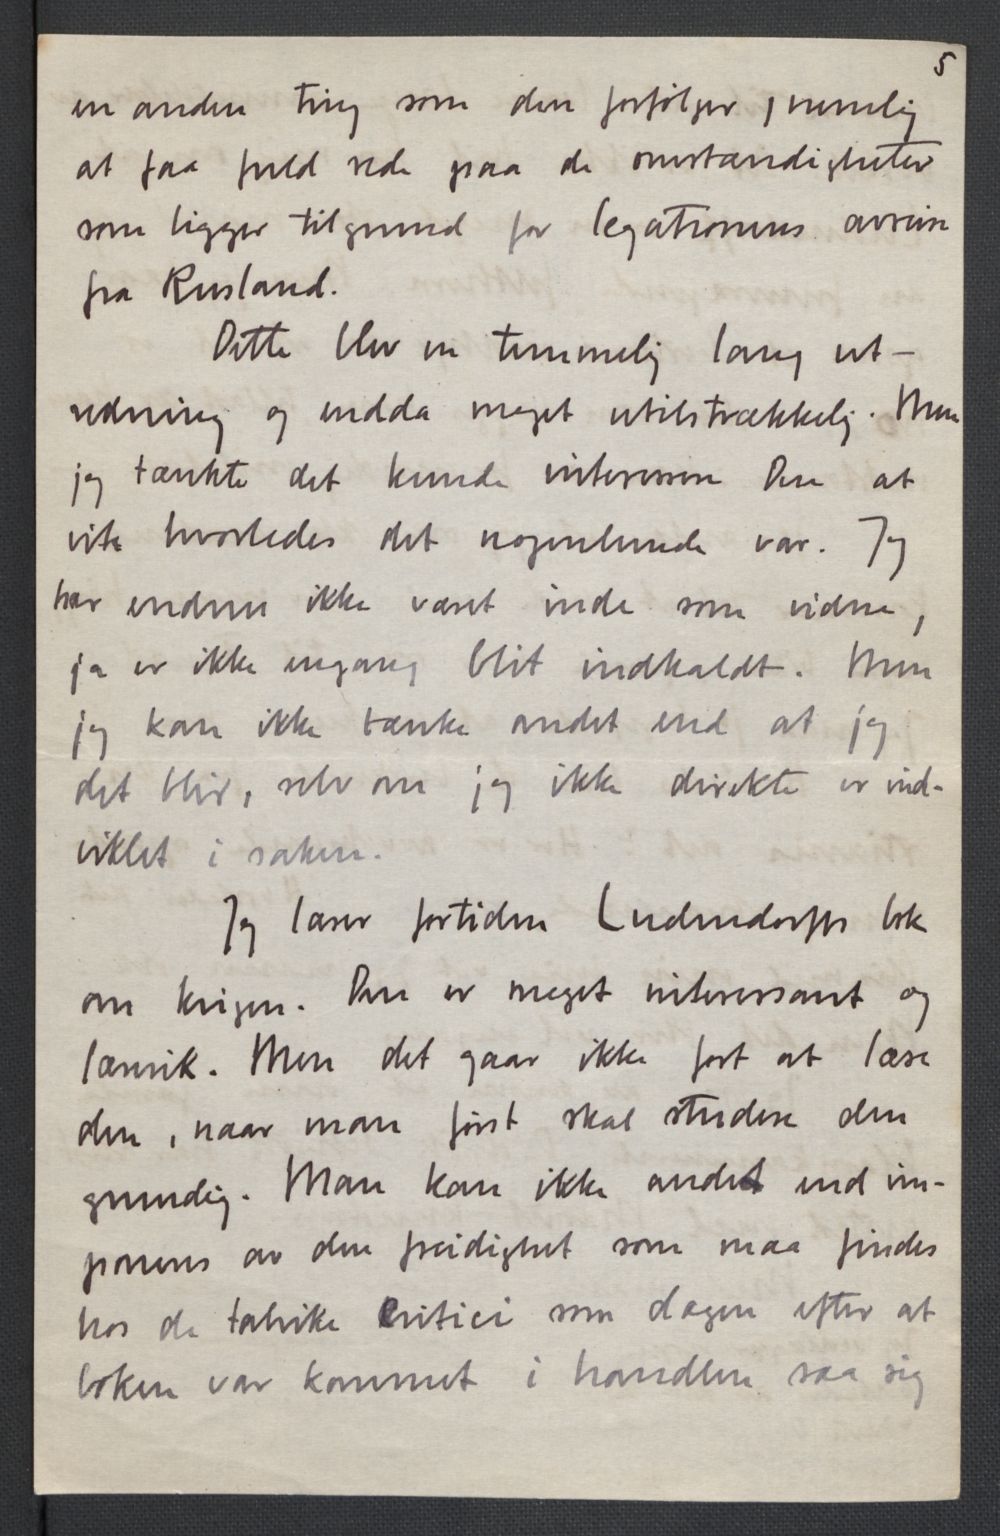 5
en anden ting som den forfølger, nemlig
at faa fuld rede paa de omstændigheter
som ligger tilgrund for legationens avreise
fra Rusland.
Dette blev en temmelig lang ut-
redning og endda meget utilstrækkelig. Men
jeg tænkte det kunde interessere Dem at
vite hvorledes det nogenlunde var. Jeg
har endnu ikke været inde som vidne,
ja er ikke engang blit indkaldt. Men
jeg kan ikke tænke andet end at jeg
det blir, selv om jeg ikke direkte er ind-
viklet i saken.
Jeg læser fortiden Ludendorffs bok
om krigen. Den er meget interessant og
lærerik. Men det gaar ikke fort at læse
den, naar man først skal studere den
grundig. Man kan ikke andet end im-
poneres av den freidighet som maa findes
hos de talrike critici som dagen efter at
boken var kommet i handelen saa sig